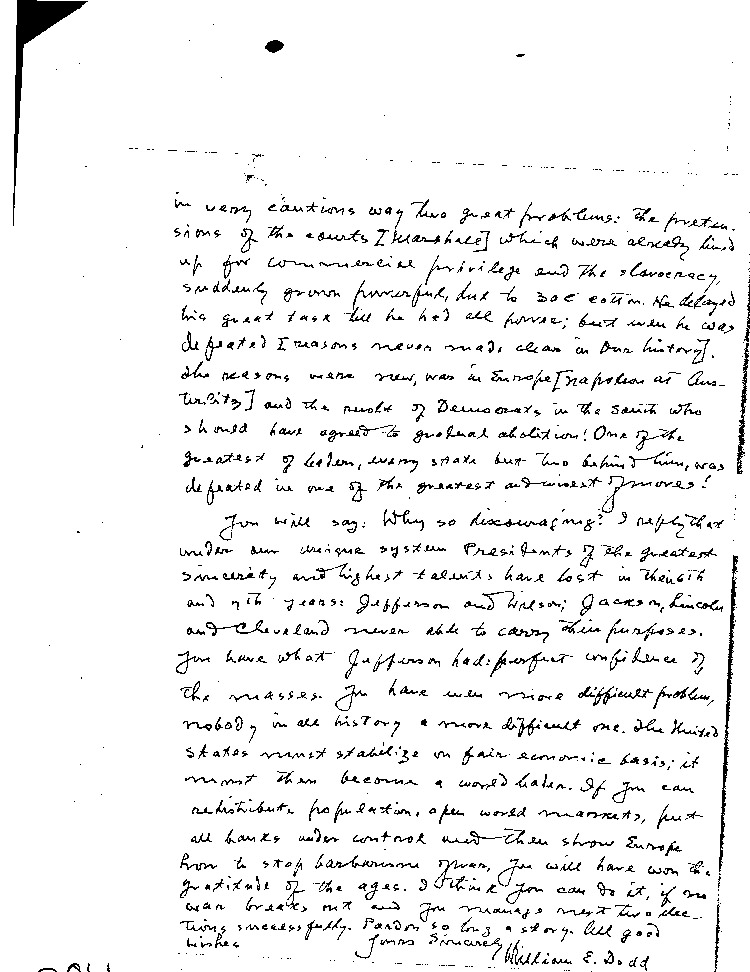 in very cautious way two great problems: the preten-
sions of the courts [Marshall] which were already lined
up for commercial privilege and the slavocracy,
suddenly grown powerful, due to 30¢ cotton. He delayed
his great task till he had all power; but even he was
defeated [reasons never made clear in our history].
The reasons were new, was in Europe [Napoleon at Aus-
terlitz] and the revolt of Democrats in the South who
should have agreed to gradual abolition! One of the
greatest of leaders, every state but two behind him, was
defeated in one of the greatest and wisest of moves!
You will say: Why so discouraging? I reply that
under our unique system Presidents of the greatest
sincerity and highest talents have lost in their 6th
and 7th years: Jefferson and Wilson; Jackson, Lincoln
and Cleveland never able to carry their purposes.
You have what Jefferson had: perfect confidence of
the masses. You have even more difficult problem,
nobody in all history a more difficult one. The United
States must stabilize on fair economic basis; it
must then become a world leader. If you can
redistribute population, open world markets, put
all banks under control and then show Europe
how to stop barbarism of war, you will have won the
gratitude of the ages. I think you can do it, if no
war breaks out and you manage next two elec-
tions successfully. Pardon so long a story. All good
wishes
Yours Sincerely,
William E. Dodd